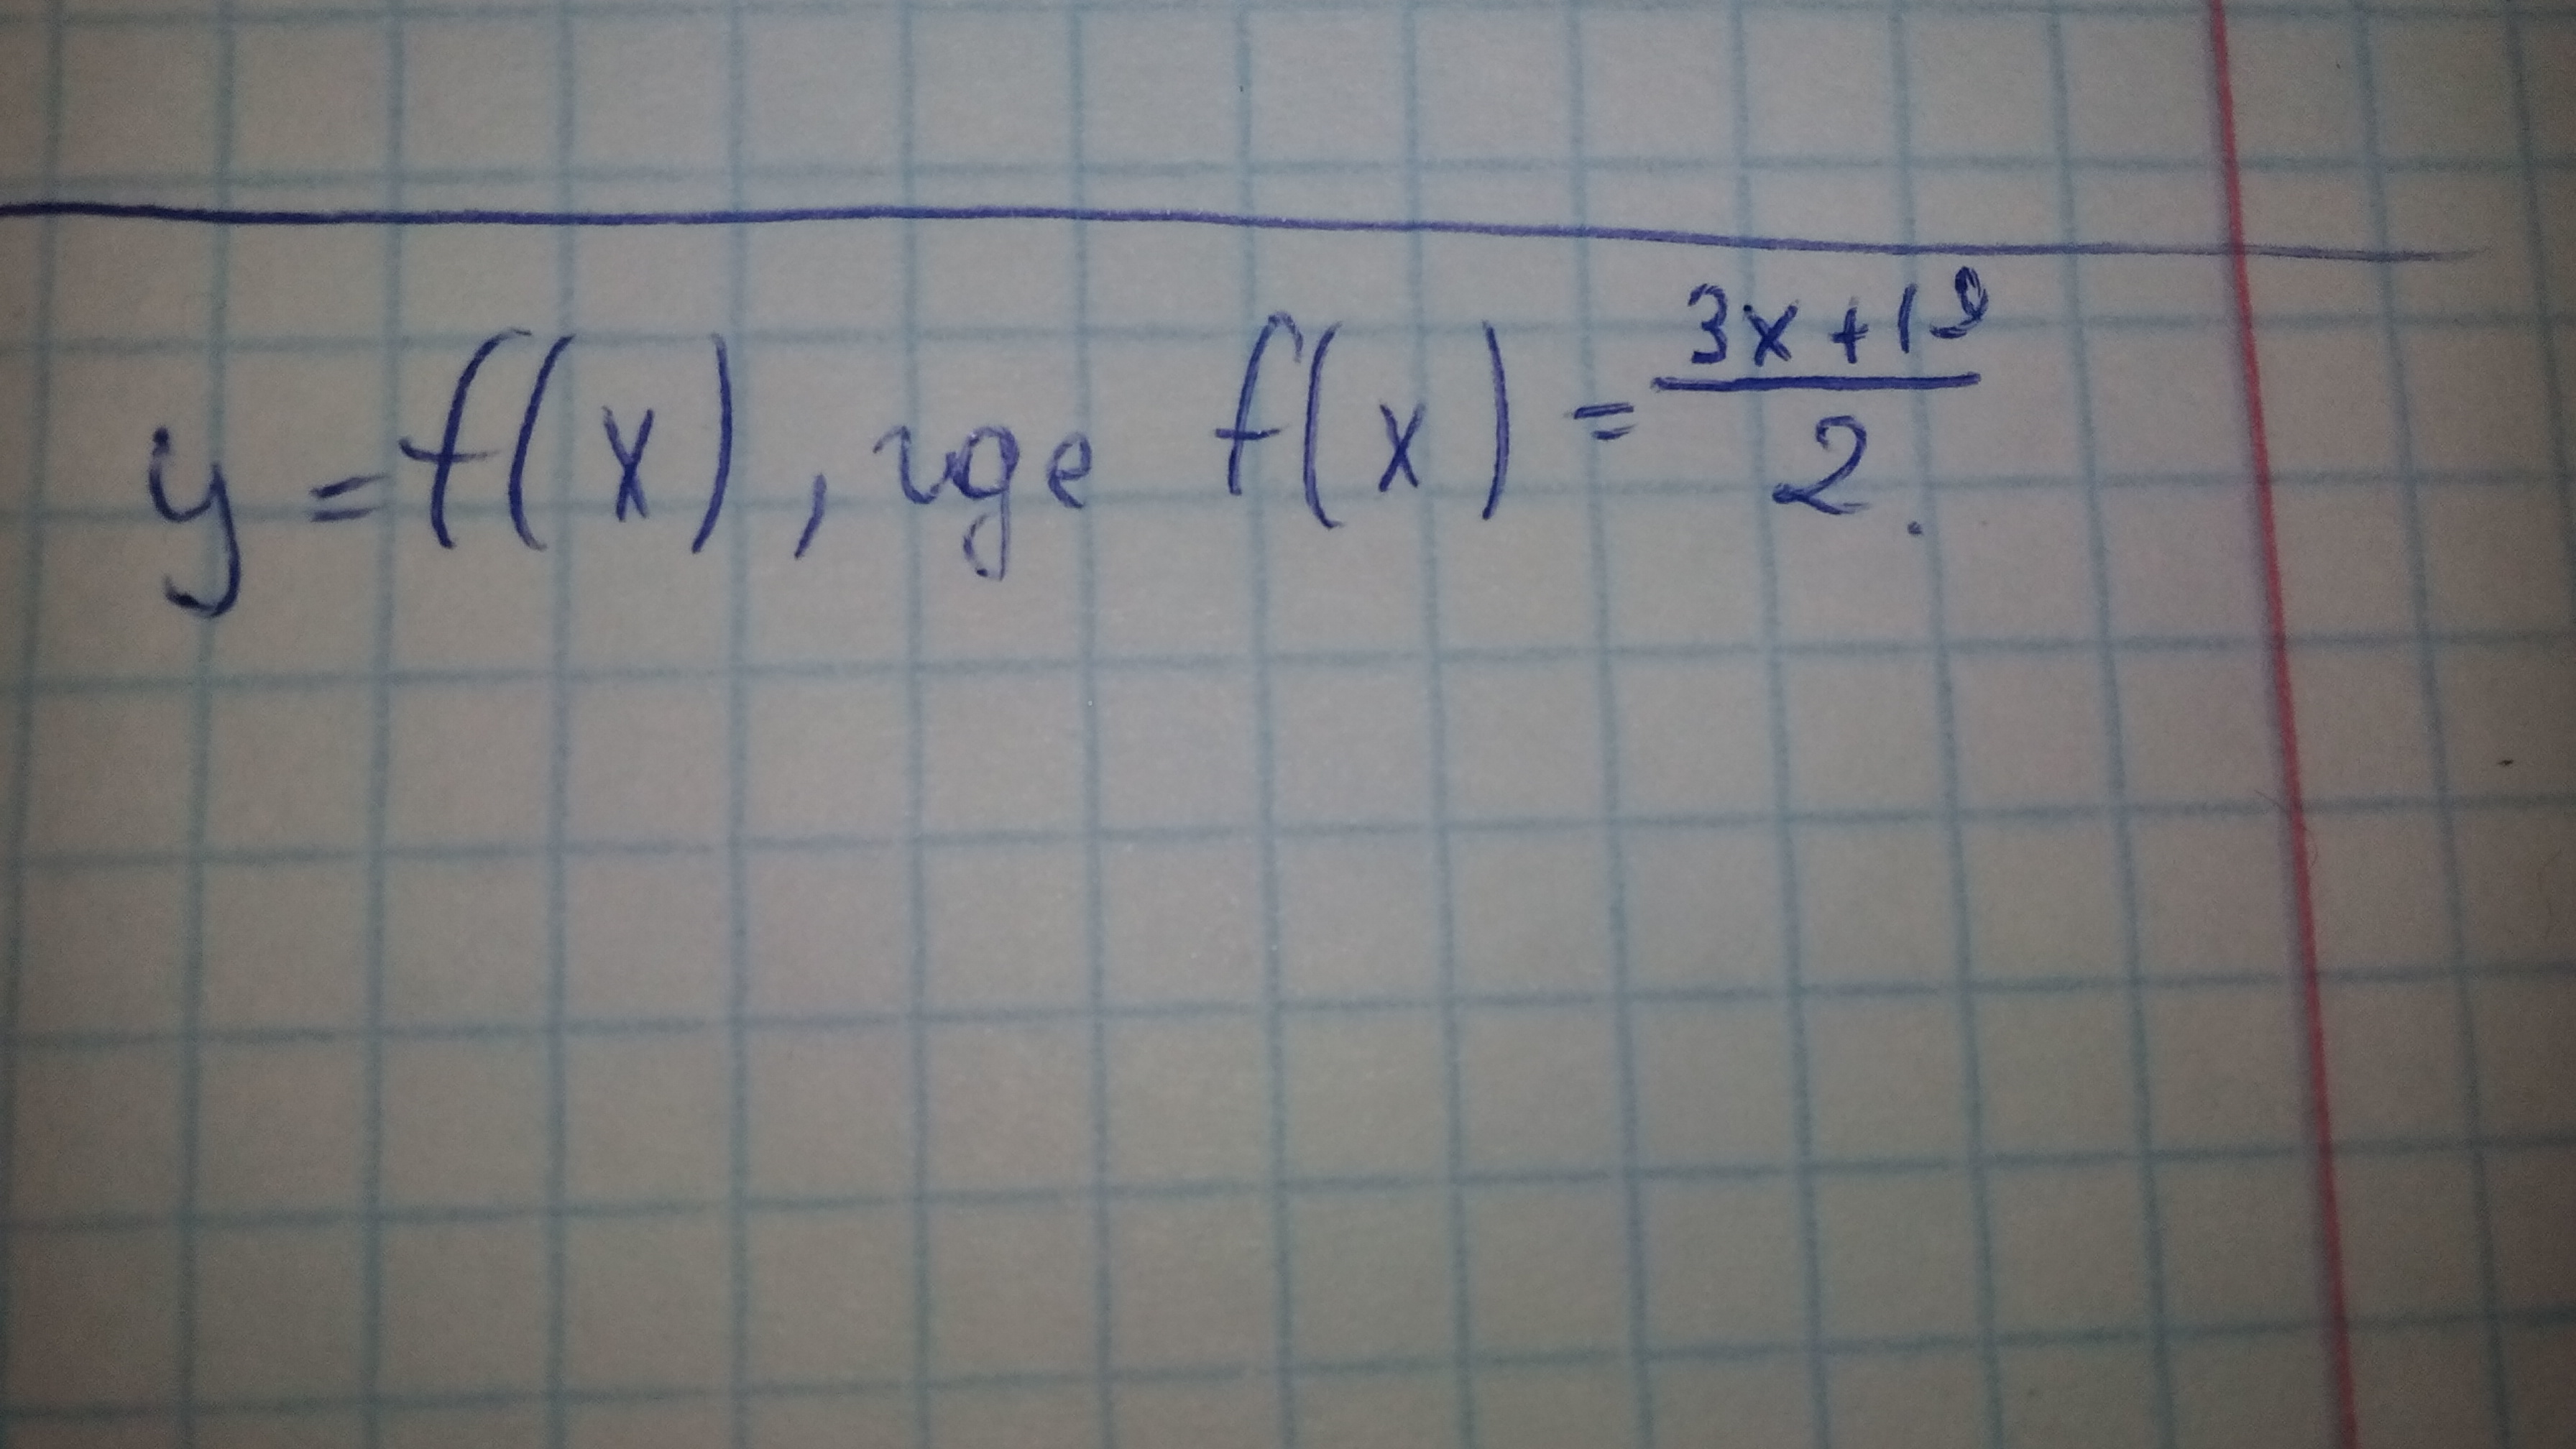 y = f(x), где f(x) = (3x + 19)/2.